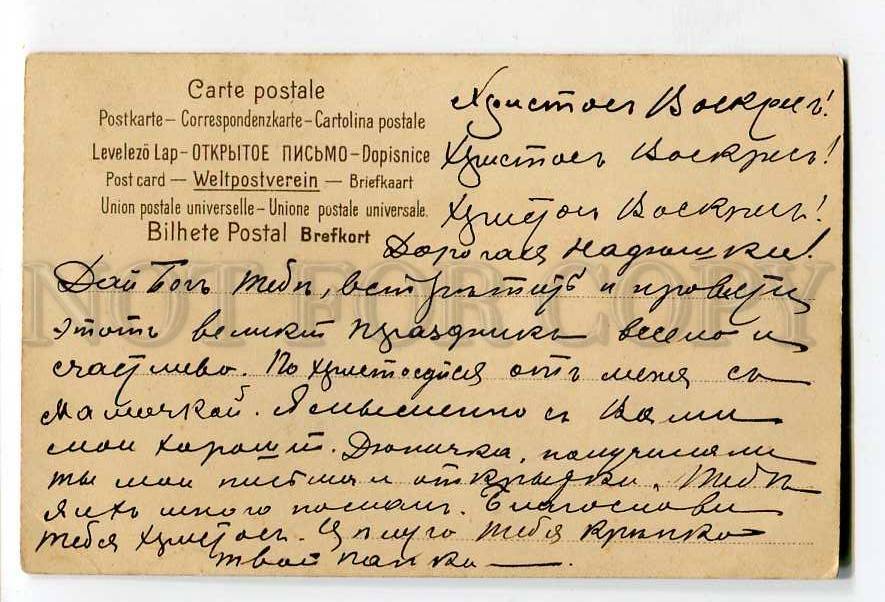 Carte postale
Postkarte – Correspondenzkarte – Cartolina postale
Levelező Lap – ОТКРЫТОЕ ПИСЬМО – Dopisnice
Post card — Weltpostverein — Briefkaart
Union postale universelle – Unione postale universale.
Bilhete Postal Brefkort
Христосъ Воскресъ!
Христосъ Воскресъ!
Христосъ Воскресъ!
Дорогая Надюшка!
Дай Богъ тебѣ, встрѣтить и провести
этотъ великій праздникъ весело и
счастливо. Похристосуйся отъ меня съ
Мамочкой. Я мысленно съ Вами
мои хорошій. получила ли
ты мои письма и открытки. Тебѣ
я ихъ много послалъ. Благослови
тебя Христосъ. Цѣлую тебя крѣпко
твой папка
NOT FOR COPY